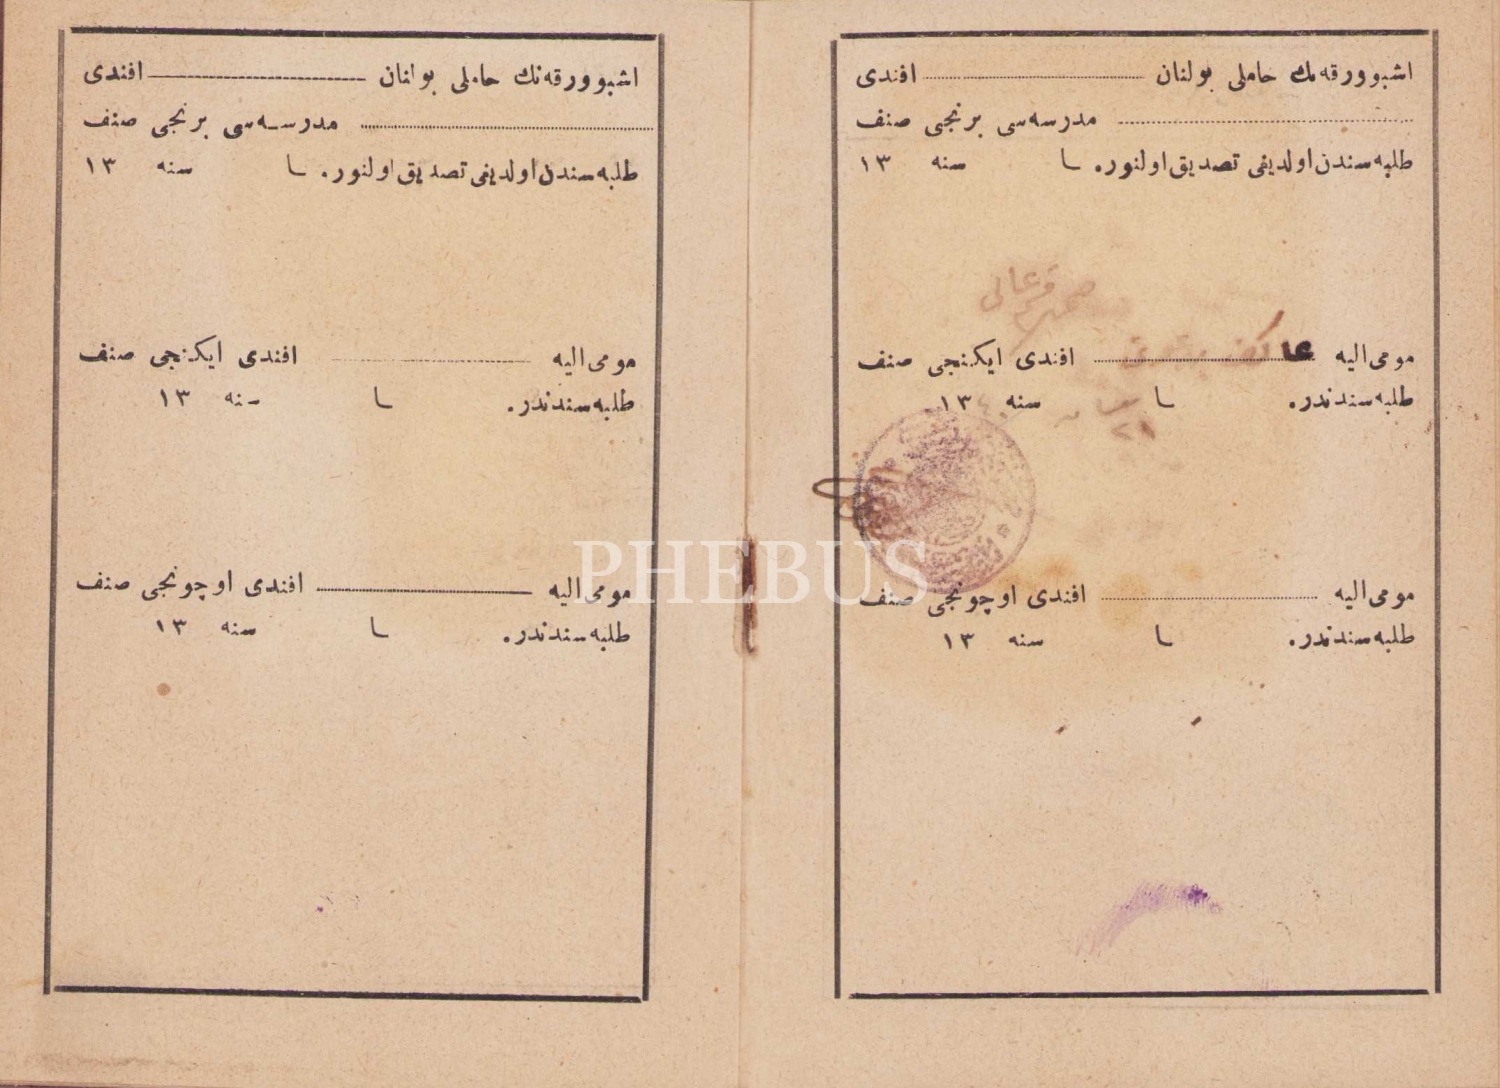 اشبو ورقه‌نك حاملی بولنان ........ افندی
........ مدرسه‌سی برنجی صنف
طلبه‌سندن اولدیغی تصدیق اولنور. ـا سنه ١٣
مومی الیه ........ افندی ایکنجی صنف
طلبه‌سندندر. ـا سنه ١٣
٢١
مومی الیه ........ افندی اوچونجی صنف
طلبه‌سندندر. ـا سنه ١٣
اشبو ورقه‌نك حاملی بولنان ........ افندی
........ مدرسه‌سی برنجی صنف
طلبه‌سندن اولدیغی تصدیق اولنور. ـا سنه ١٣
مومی الیه ........ افندی ایکنجی صنف
طلبه‌سندندر. ـا سنه ١٣
مومی الیه ........ افندی اوچونجی صنف
طلبه‌سندندر. ـا سنه ١٣
PHEBUS